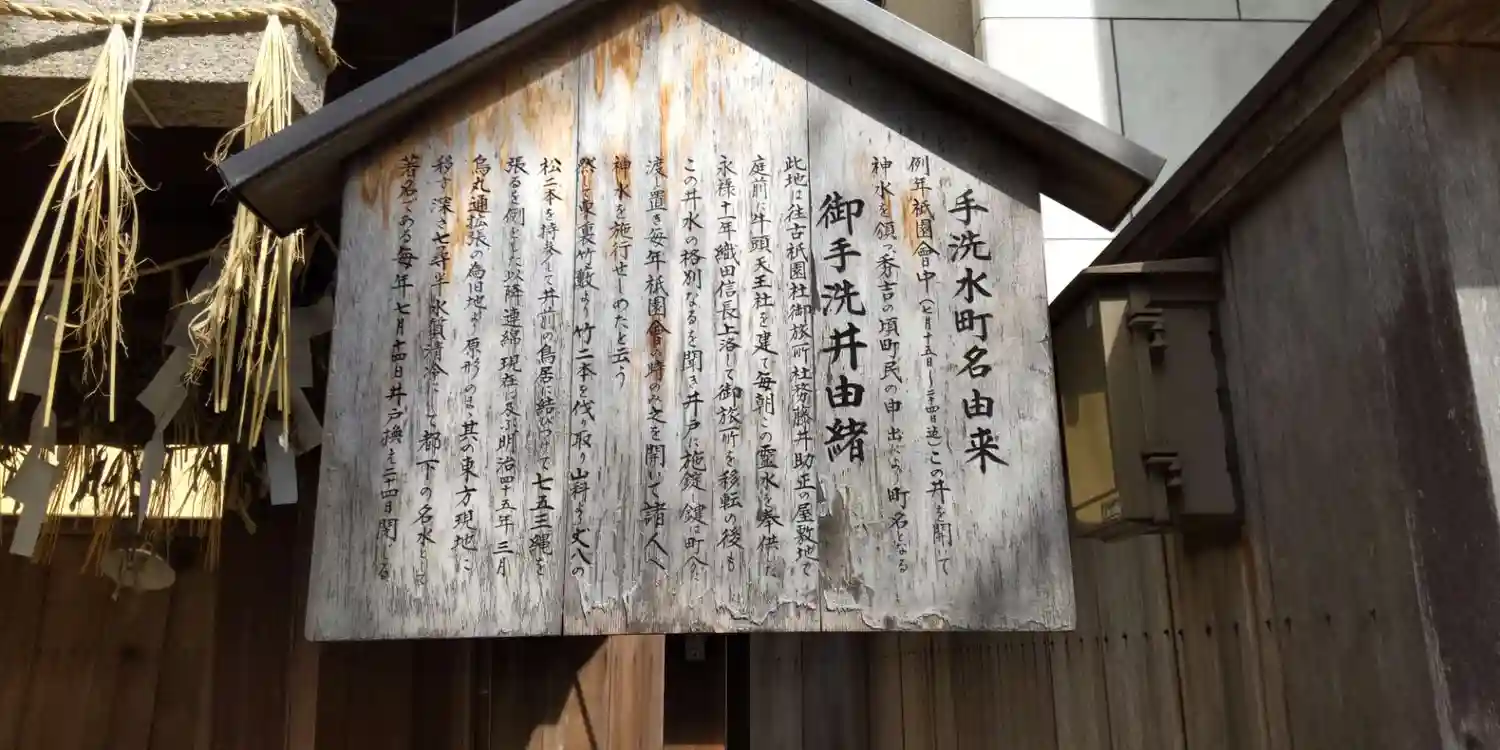 手洗水町名由来
例年祇園會中（七月十五日〜二十四日迄）この井を開いて
神水を領つ秀吉の頃町民の申出により町名となる
御手洗井由緒
此地は往古祇園社御旅所社務藤井助正の屋敷地で
庭前に牛頭天王社を建て毎朝この霊水を奉供した
永禄十一年織田信長上洛して御旅所を移転の後も
この井水の格別なるを聞き井戸に施錠し鍵は町へ
渡し置き毎年祇園會の時のみ之を開いて諸人へ
神水を施行せしめたと云う
然して東裏竹藪より竹二本を伐り取り山科より丈八の
松二本を持参して井前の鳥居に結びつけて七五三縄を
張るを例とした以降連綿現在に及ぶ明治四十五年三月
烏丸通拡張の為旧地より原形のまゝ其の東方現地に
移す深さ七尋半水質清冷にして都下の名水として
著名である毎年七月十四日井戸換え二十四日閉じる